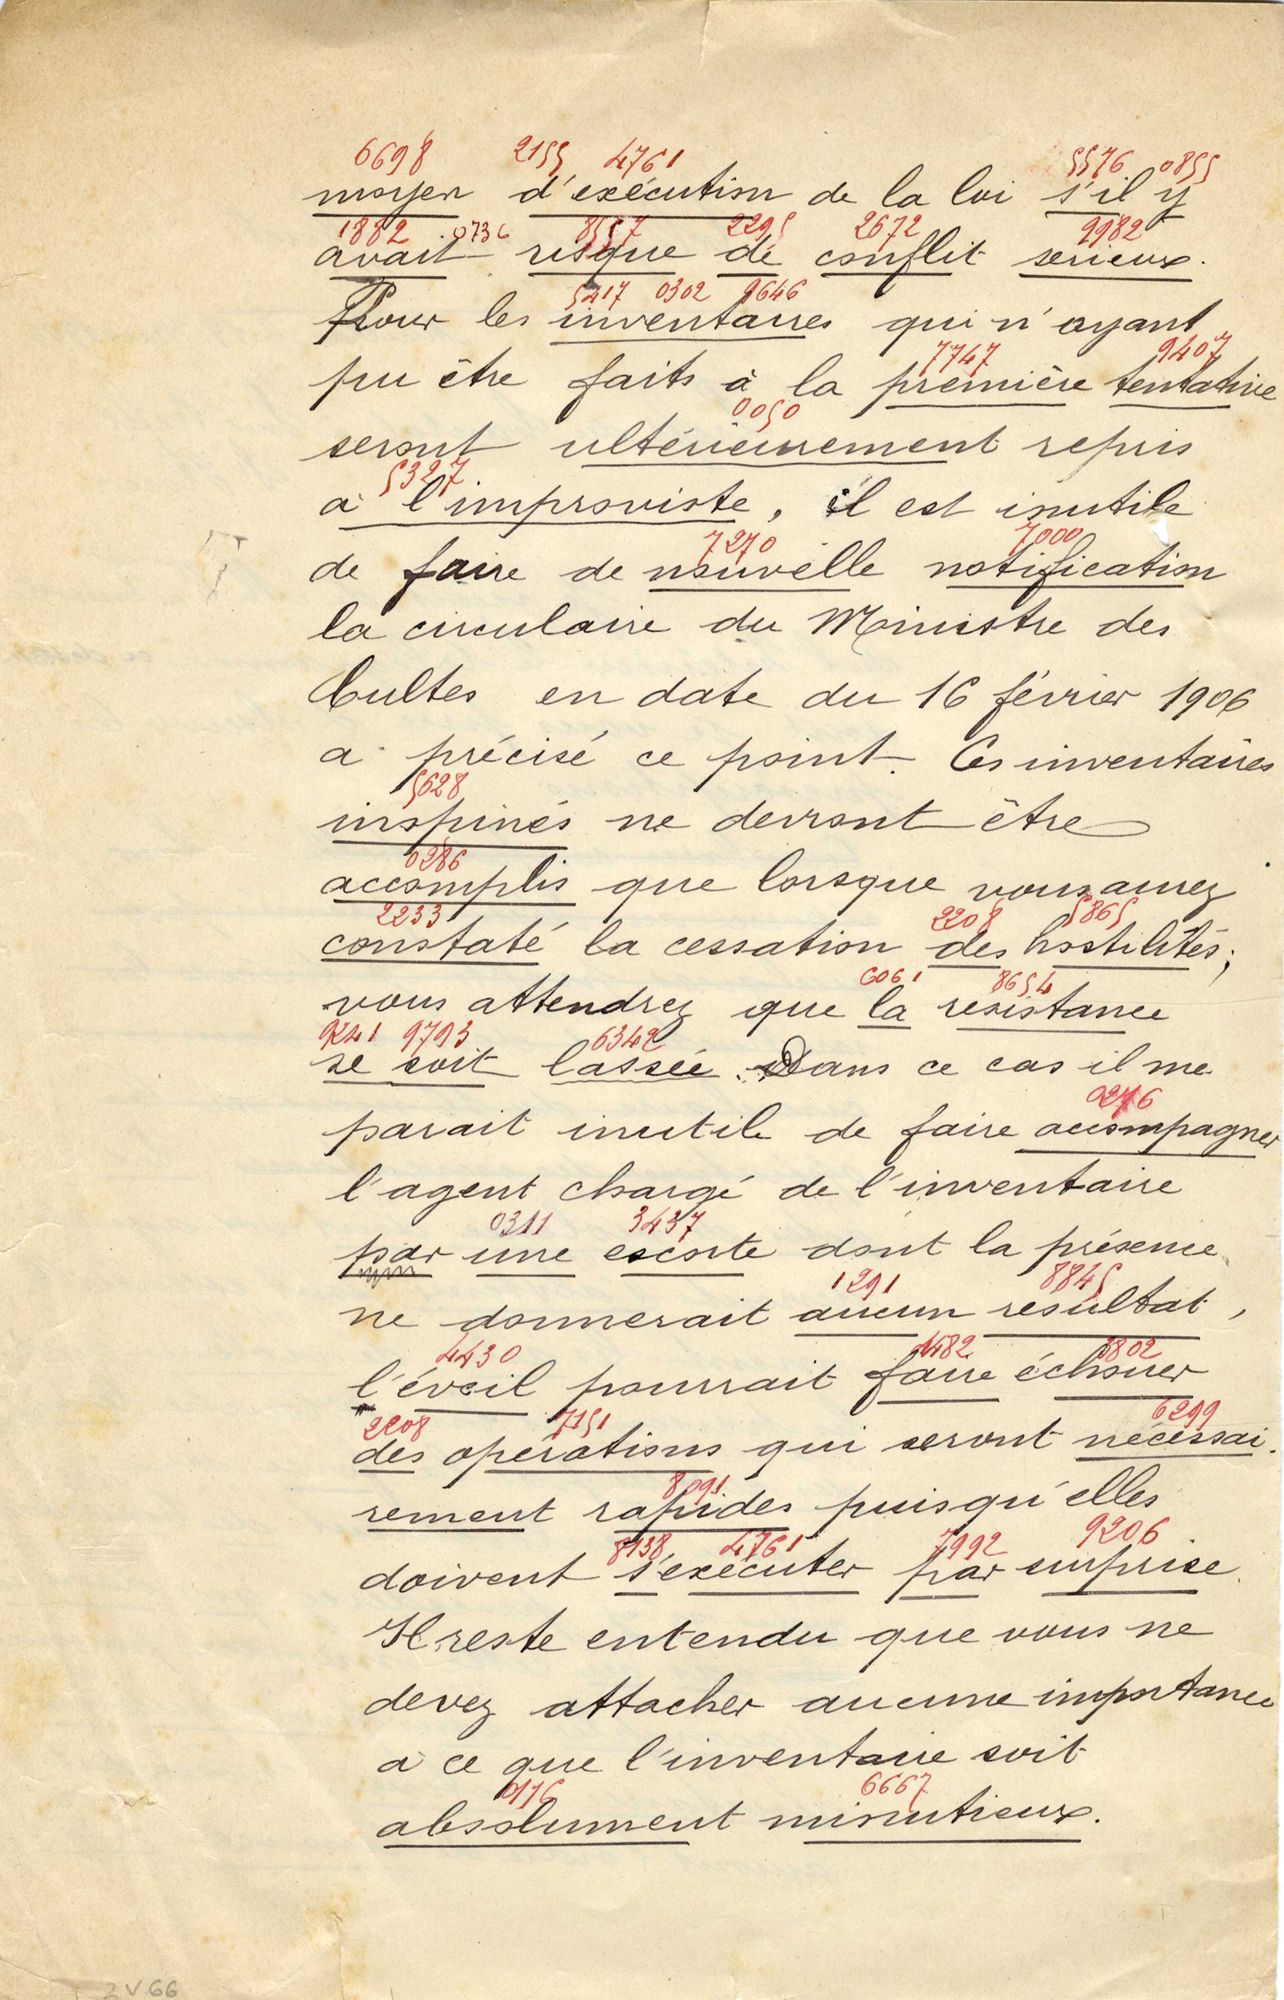 6698 2155 4761 5576 0855
moyen d'exécution de la loi s'il y
1882 0736 8557 2295 2672 9982
avait risque de conflit serieux.
5417 0302 9646
Pour les inventaires qui n'ayant
7747 9407
pu être faits à la première tentative
0050
seront ultérieurement repris
5327
à l'improviste, il est inutile
7270 7000
de faire de nouvelle notification
la circulaire du Ministre des
Cultes en date du 16 février 1906
a précisé ce point. Ces inventaires
5628
inopinés ne devront être
0286
accomplis que lorsque vous aurez
2233 2208 5865
constaté la cessation des hostilités;
6061 8654
vous attendrez que la resistance
9241 9793 6342
se soit lassée. Dans ce cas il me
0276
parait inutile de faire accompagner
l'agent chargé de l'inventaire
0311 3437
par une escorte dont la présence
1291 8845
ne donnerait aucun resultat,
4430 4482 3802
l'éveil pourrait faire échouer
2208 7151 6299
des opérations qui seront nécessai.
8091
rement rapides puisqu'elles
8138 4761 7992 9206
doivent s'exécuter par surprise.
Il reste entendu que vous ne
devez attacher aucune importance
à ce que l'inventaire soit
0176 6667
absolument minutieux.
2 V 66